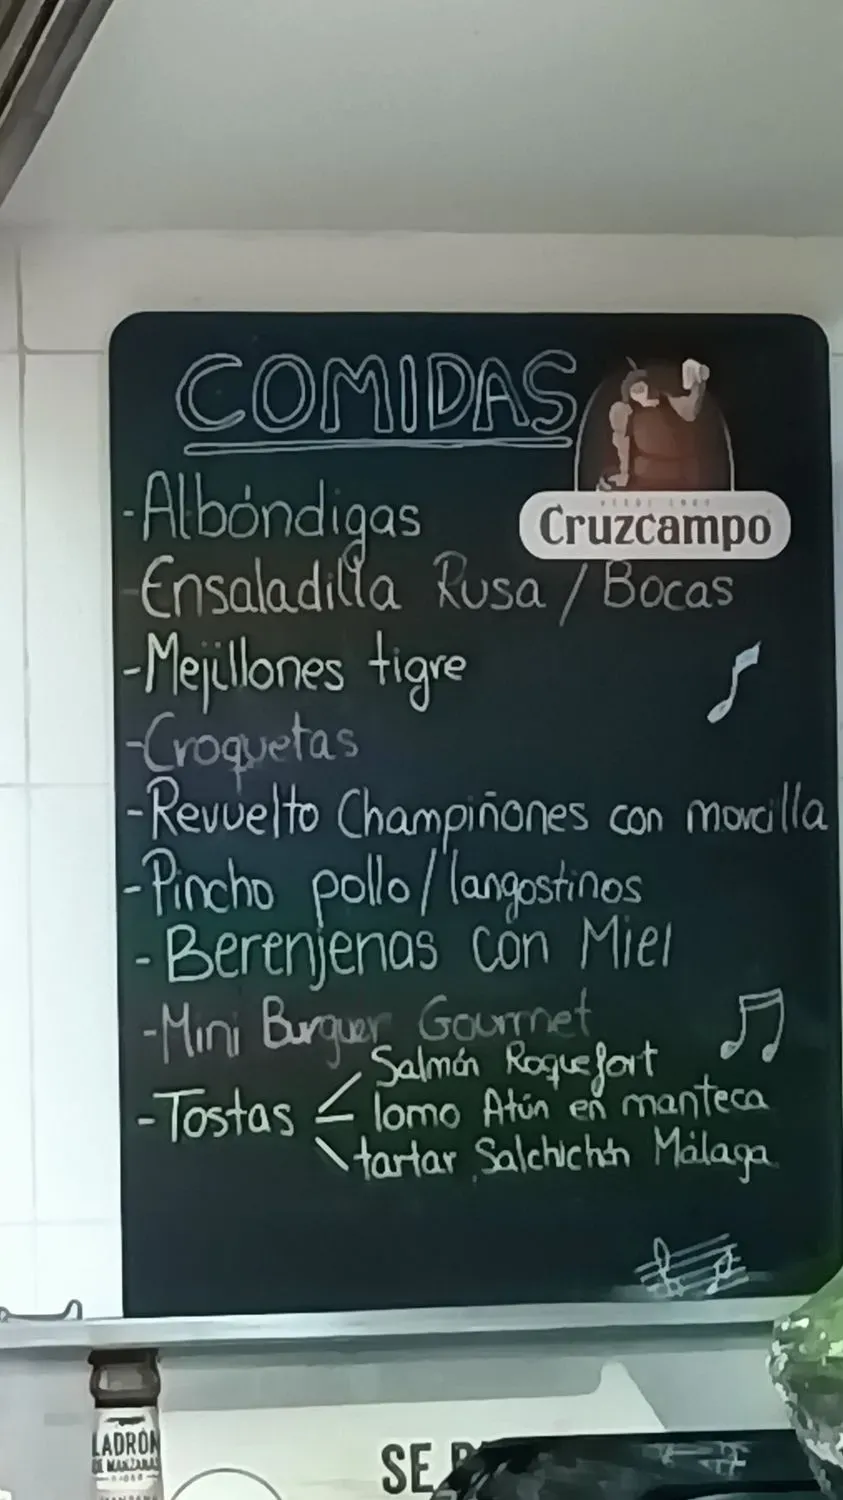 COMIDAS
Cruzcampo
-Albóndigas
-Ensaladilla Rusa / Bocas
-Mejillones tigre
-Croquetas
-Revuelto Champiñones con morcilla
-Pincho pollo/langostinos
-Berenjenas con Miel
-Mini Burguer Gourmet
-Tostas
Salmón Roquefort
lomo Atún en manteca
tartar Salchichón Málaga
LADRÓN
DE MANZANAS
SE